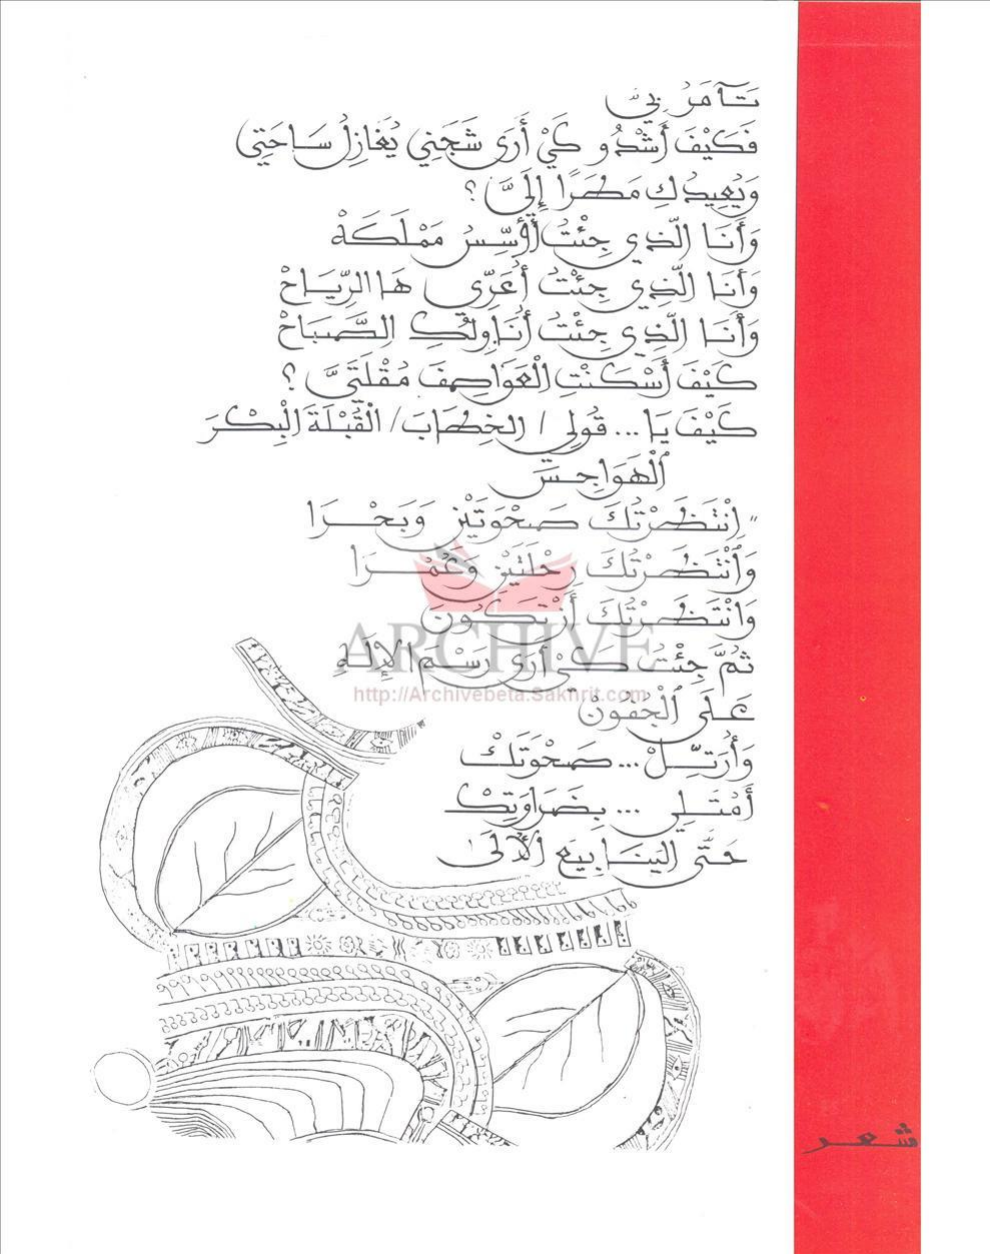 تَآمَرَ بِي
فَكَيْفَ أَشْدُو كَيْ أَرَى شَجَنِي يُغَازِلُ سَاحَتِي
وَيُعِيدُكِ مَطَرًا إِلَيَّ ؟
وَأَنَا الّذِي جِئْتُ أُؤَسِّسُ مَمْلَكَةْ
وَأَنَا الّذِي جِئْتُ أُعَرِّي هَا الرِّيَاحْ
وَأَنَا الّذِي جِئْتُ أُنَاوِلُكِ الصَّبَاحْ
كَيْفَ أَسْكَنْتِ الْعَوَاصِفَ مُقْلَتَيَّ ؟
كَيْفَ يَا ... قُولِي / الخِطَابَ / الْقُبْلَةَ الْبِكْرَ
الْهَوَاجِسَ
" اِنْتَظَرْتُكَ صَحْوَتَيْنِ وَبَحْرَا
وَانْتَظَرْتُكَ رِحْلَتَيْنِ وَعُمْرَا
وَانْتَظَرْتُكَ أَنْ تَكُونَ
ثُمَّ جِئْتُ كَيْ أَرَى رَسْمَ الإِلَهِ
عَلَى الْجُفُونْ
وَأُرَتِّلْ ... صَحْوَتَكْ
أَمْتَلِي ... بِضَرَاوَتِكْ
حَتَّى اليَنَابِيعِ الأُلَى
ARCHIVE
http://Archivebeta.Sakhrit.com
شعر